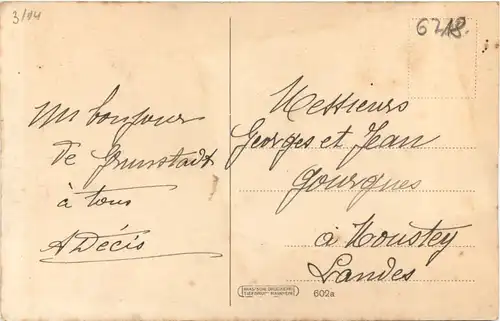 3/04
6218.
un bonjour
de Grunstadt
à tous
A Décis
Messieurs
Georges et Jean
Gourgues
à Moustey
Landes
602a